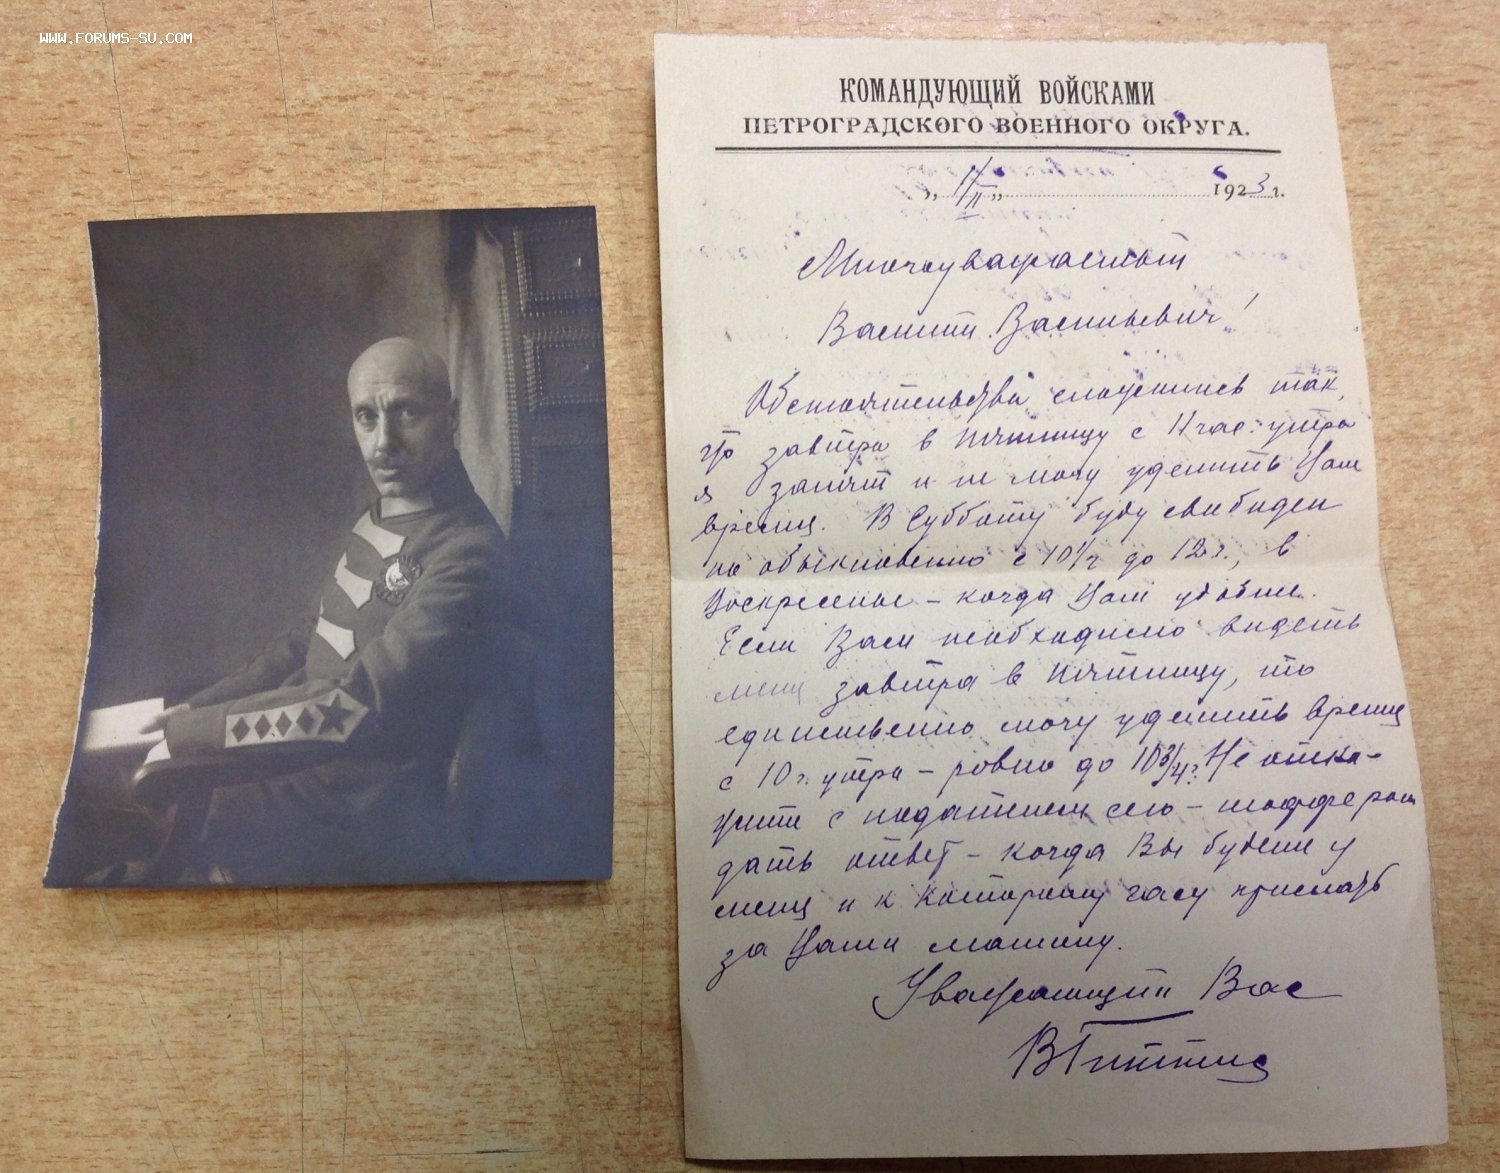 WWW.FORUMS-SU.COM
КОМАНДУЮЩИЙ ВОЙСКАМИ
ПЕТРОГРАДСКОГО ВОЕННОГО ОКРУГА.
1923 г.
Многоуважаемый
Василий Васильевич!
Обстоятельства сложились так,
что завтра в пятницу с 11 час. утра
я занят и не могу уделить Вам
время. В Субботу буду свободен
по обыкновению с 10½ до 12 ч., в
Воскресенье – когда Вам удобнее.
Если Вам необходимо видеть
меня завтра в пятницу, то
единственно могу уделить время
с 10 ч. утра – ровно до 10¾ ч. Не отка-
жите с подателем сего – шоффером
дать ответ – когда Вы будете у
меня и к которому часу прислать
за Вами машину.
Уважающий Вас
В Гиттис